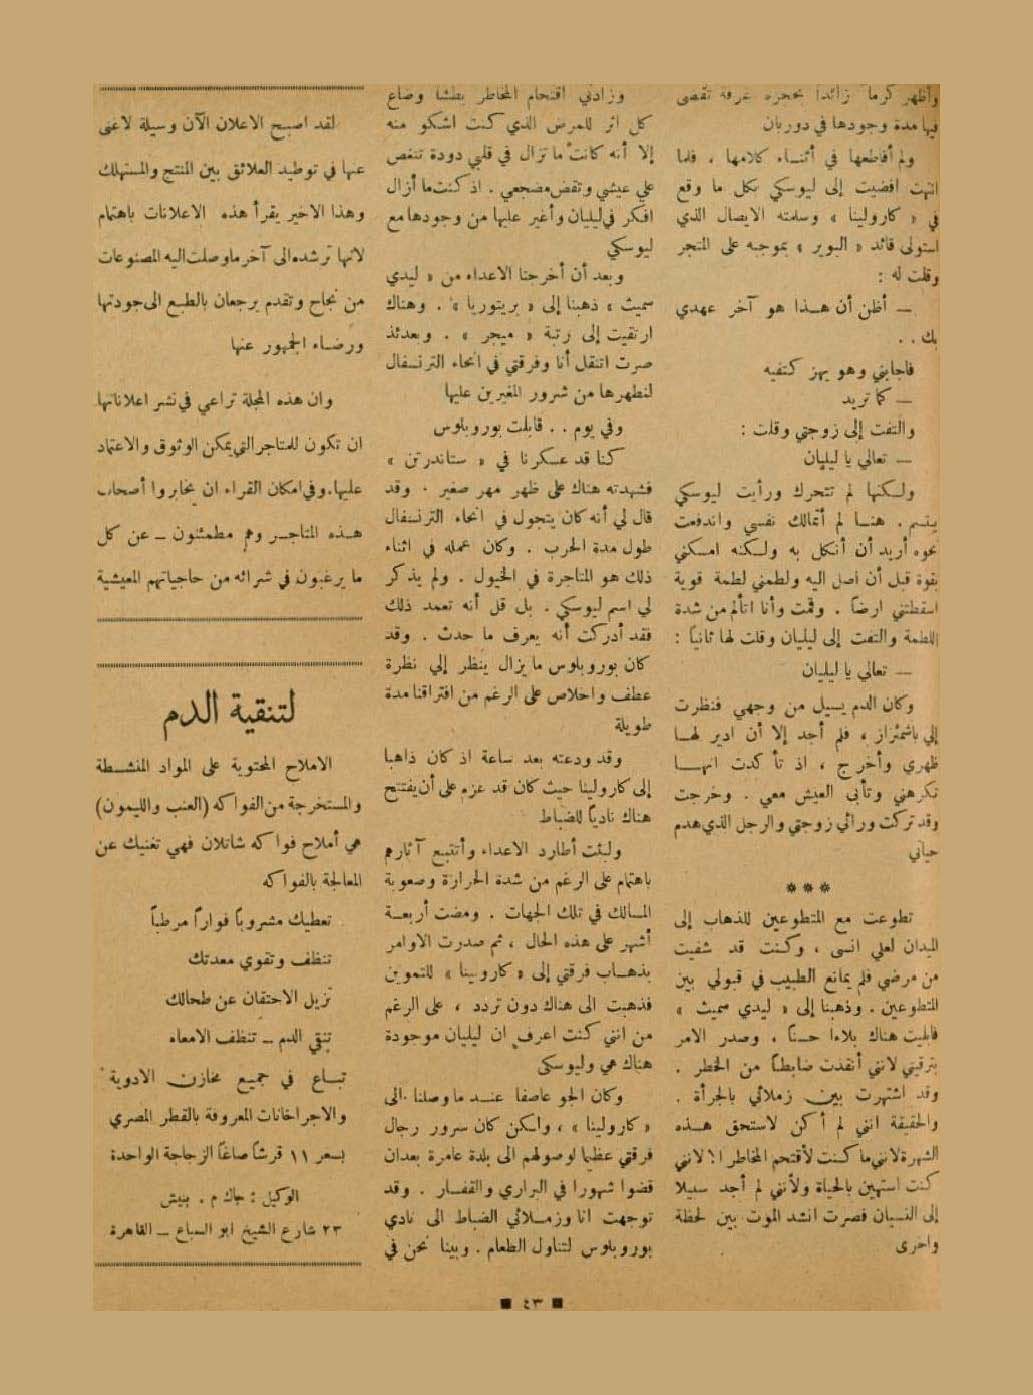 وأظهر كرما زائدا بحجزه غرفة تقضى
فيها مدة وجودها في دوربان
ولم أقاطعها في أثناء كلامها ، فلما
انتهت افضيت إلى ليوسكي بكل ما وقع
في « كارولينا » وسلمته الايصال الذي
استولى قائد « البوير » بموجبه على المتجر
وقلت له :
— أظن أن هذا هو آخر عهدي
بك . .
فاجابني وهو يهز كتفيه
— كما تريد
والتفت إلى زوجتي وقلت :
— تعالي يا ليليان
ولكنها لم تتحرك ورأيت ليوسكي
يبتسم . هنا لم أتمالك نفسي واندفعت
نحوه أريد أن أنكل به ولكنه امسكني
بقوة قبل أن اصل اليه ولطمني لطمة قوية
اسقطتني ارضا . وقمت وأنا اتألم من شدة
اللطمة والتفت إلى ليليان وقلت لها ثانياً :
— تعالي يا ليليان
وكان الدم يسيل من وجهي فنظرت
إلي باشمئزاز ، فلم أجد إلا أن ادير لها
ظهري وأخرج ، اذ تأكدت انها
تكرهني وتأبى العيش معي . وخرجت
وقد تركت ورائي زوجتي والرجل الذي هدم
حياتي
***
تطوعت مع المتطوعين للذهاب إلى
الميدان لعلي انسى ، وكنت قد شفيت
من مرضي فلم يمانع الطبيب في قبولي بين
المتطوعين . وذهبنا إلى « ليدي سميث »
فابليت هناك بلاءا حسنا . وصدر الامر
بترقيتي لانني أنقذت ضابطا من الخطر .
وقد اشتهرت بين زملائي بالجرأة .
والحقيقة انني لم أكن لاستحق هذه
الشهرة لانني ما كنت لأقتحم المخاطر الا لانني
كنت استهين بالحياة ولأنني لم أجد سبيلا
إلى النسيان فصرت انشد الموت بين لحظة
واخرى
وزادني اقتحام المخاطر بطشا وضاع
كل اثر للمرض الذي كنت اشكو منه
إلا أنه كانت ما تزال في قلبي دودة تنغص
علي عيشي وتقض مضجعي . اذ كنت ما أزال
افكر في ليليان وأغير عليها من وجودها مع
ليوسكي
وبعد أن أخرجنا الاعداء من « ليدي
سميث » ذهبنا إلى « بريتوريا » . وهناك
ارتقيت إلى رتبة « ميجر » . وبعدئذ
صرت اتنقل أنا وفرقتي في انحاء الترنسفال
لنطهرها من شرور المغيرين عليها
وفي يوم . . قابلت بوروبلوس
كنا قد عسكرنا في « ستاندرتن »
فشهدته هناك على ظهر مهر صغير . وقد
قال لي أنه كان يتجول في انحاء الترنسفال
طول مدة الحرب . وكان عمله في اثناء
ذلك هو المتاجرة في الخيول . ولم يذكر
لي اسم ليوسكي . بل قل أنه تعمد ذلك
فقد أدركت أنه يعرف ما حدث . وقد
كان بوروبلوس ما يزال ينظر إلي نظرة
عطف واخلاص على الرغم من افتراقنا مدة
طويلة
وقد ودعته بعد ساعة اذ كان ذاهبا
إلى كارولينا حيث كان قد عزم على أن يفتتح
هناك نادياً للضباط
ولبثت أطارد الاعداء وأتتبع آثارهم
باهتمام على الرغم من شدة الحرارة وصعوبة
المسالك في تلك الجهات . ومضت أربعة
أشهر على هذه الحال ، ثم صدرت الاوامر
بذهاب فرقتي إلى « كارولينا » للتموين
فذهبت الى هناك دون تردد ، على الرغم
من انني كنت اعرف ان ليليان موجودة
هناك هي وليوسكى
وكان الجو عاصفا عند ما وصلنا الى
« كارولينا » ، ولكن كان سرور رجال
فرقتي عظيما لوصولهم الى بلدة عامرة بعد ان
قضوا شهورا في البراري والقفار . وقد
توجهت انا وزملائي الضباط الى نادي
بوروبلوس لتناول الطعام . وبينا نحن في
لقد اصبح الاعلان الآن وسيلة لاغنى
عنها في توطيد العلائق بين المنتج والمستهلك
وهذا الاخير يقرأ هذه الاعلانات باهتمام
لانها ترشده الى آخر ما وصلت اليه المصنوعات
من نجاح وتقدم يرجعان بالطبع الى جودتها
ورضاء الجمهور عنها
وان هذه المجلة تراعي في نشر اعلاناتها
ان تكون للمتاجر التي يمكن الوثوق والاعتماد
عليها . وفي امكان القراء ان يخابروا أصحاب
هذه المتاجر وهم مطمئنون — عن كل
ما يرغبون في شرائه من حاجياتهم المعيشية
لتنقية الدم
الاملاح المحتوية على المواد المنشطة
والمستخرجة من الفواكه (العنب والليمون)
هي أملاح فواكه شاتلان فهي تغنيك عن
المعالجة بالفواكه
تعطيك مشروباً فواراً مرطباً
تنظف وتقوي معدتك
تزيل الاحتقان عن طحالك
تنقي الدم — تنظف الامعاء
تباع في جميع مخازن الادوية
والاجزاخانات المعروفة بالقطر المصري
بسعر ١١ قرشا صاغا الزجاجة الواحدة
الوكيل : جاك م . بينش
٢٣ شارع الشيخ ابو السباع — القاهرة
■ ٤٣ ■